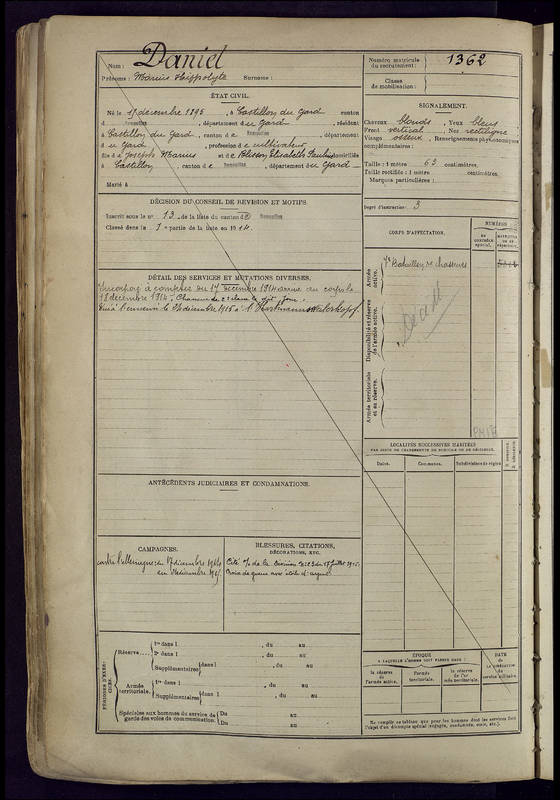 Nom : Daniel
Prénoms : Marius Hippolyte Surnom :
Numéro matricule du recrutement : 1362
Classe de mobilisation :
ÉTAT CIVIL.
Né le 1er décembre 1895, à Castillon du Gard, canton
d Remoulins, département du Gard, résidant
à Castillon du Gard, canton de Remoulins, département
du Gard, profession de cultivateur
fils de Joseph Marius et de Blisson Elisabeth Pauline domiciliés
à Castillon, canton de Remoulins, département du Gard
Marié à
SIGNALEMENT.
Cheveux blonds, Yeux bleus
Front vertical, Nez rectiligne
Visage osseux, Renseignements physionomiques
complémentaires :
Taille : 1 mètre 63 centimètres.
Taille rectifiée : 1 mètre centimètres.
Marques particulières :
Degré d'instruction : 3
DÉCISION DU CONSEIL DE REVISION ET MOTIFS.
Inscrit sous le n° 13 de la liste du canton de Remoulins
Classé dans la 1e partie de la liste en 1914.
CORPS D'AFFECTATION.
NUMÉROS
au contrôle spécial.
Armée active.
7e Bataillon de Chasseurs
Décédé
Disponibilité et réserve de l'armée active.
Armée territoriale et sa réserve.
DÉTAIL DES SERVICES ET MUTATIONS DIVERSES.
Incorporé à compter du 17 décembre 1914 arrivé au corps le
18 décembre 1914. Chasseur de 2e classe le dit jour.
Tué à l'ennemi le décembre 1915 à l'Hartmannswillerkopf.
LOCALITÉS SUCCESSIVES HABITÉES
PAR SUITE DE CHANGEMENTS DE DOMICILE OU DE RÉSIDENCE.
Dates. Communes. Subdivisions de région.
ANTÉCÉDENTS JUDICIAIRES ET CONDAMNATIONS.
CAMPAGNES.
contre l'Allemagne : du 17 décembre 1914
au décembre 1915.
BLESSURES, CITATIONS,
DÉCORATIONS, ETC.
Cité à l'o/ de la Division du juillet 1915.
Croix de guerre avec étoile d'argent
PÉRIODES D'EXERCICES.
Réserve
1re dans l , du au
2e dans l , du au
Supplémentaires dans l , du au
Armée territoriale.
1re dans l , du au
Supplémentaires dans l , du au
Spéciales aux hommes du service de garde des voies de communication.
Du au
Du au
ÉPOQUE
À LAQUELLE L'HOMME DOIT PASSER DANS :
la réserve de l'armée active.
l'armée territoriale.
la réserve de l'armée territoriale.
DATE de la libération du service militaire.
Ne remplir ce tableau que pour les hommes dont les services font
l'objet d'un décompte spécial (engagés, condamnés, omis, etc.).